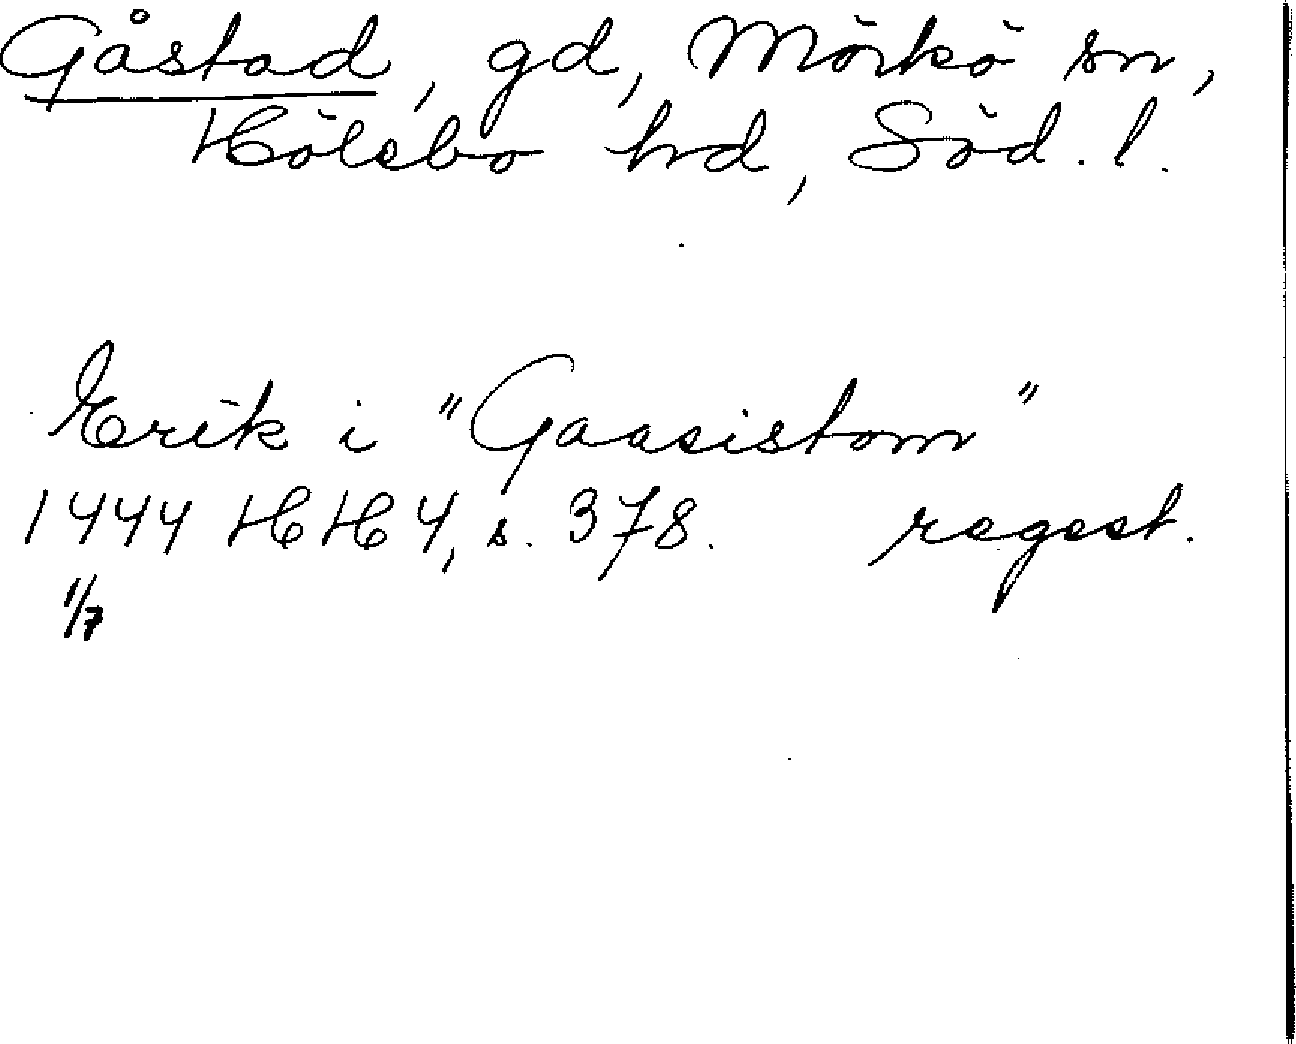 Gåstad, gd, Mörkö sn,
Hölebo hd, Söd. l.
Erik i "Gaasistom"
1444 HH 4, s. 378. regest.
1/7